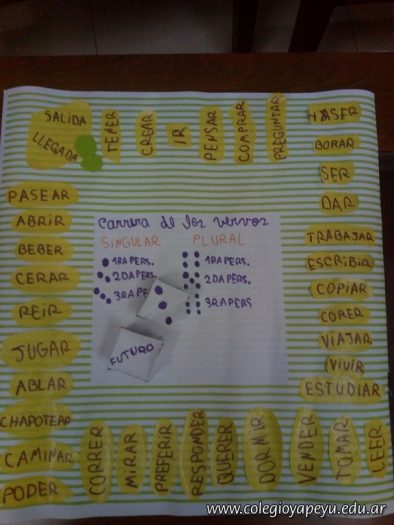 SALIDA
LLEGADA
TENER
CREAR
IR
PENSAR
COMPRAR
PREGUNTAR
NASER
BORAR
SER
DAR
TRABAJAR
ESCRIBIR
COPIAR
CORER
VIAJAR
VIVIR
ESTUDIAR
LEER
TOMAR
VENDER
DORMIR
QUERER
RESPONDER
PREFERIR
MIRAR
CORRER
PODER
CAMINAR
CHAPOTEAR
ABLAR
JUGAR
REIR
CERAR
BEBER
ABRIR
PASEAR
Carrera de los vervos
SINGULAR PLURAL
1RA PERS. 1RA PERS.
2DA PERS. 2DA PERS.
3RA PERS 3RA PERS
FUTURO
www.colegioyapeyu.edu.ar